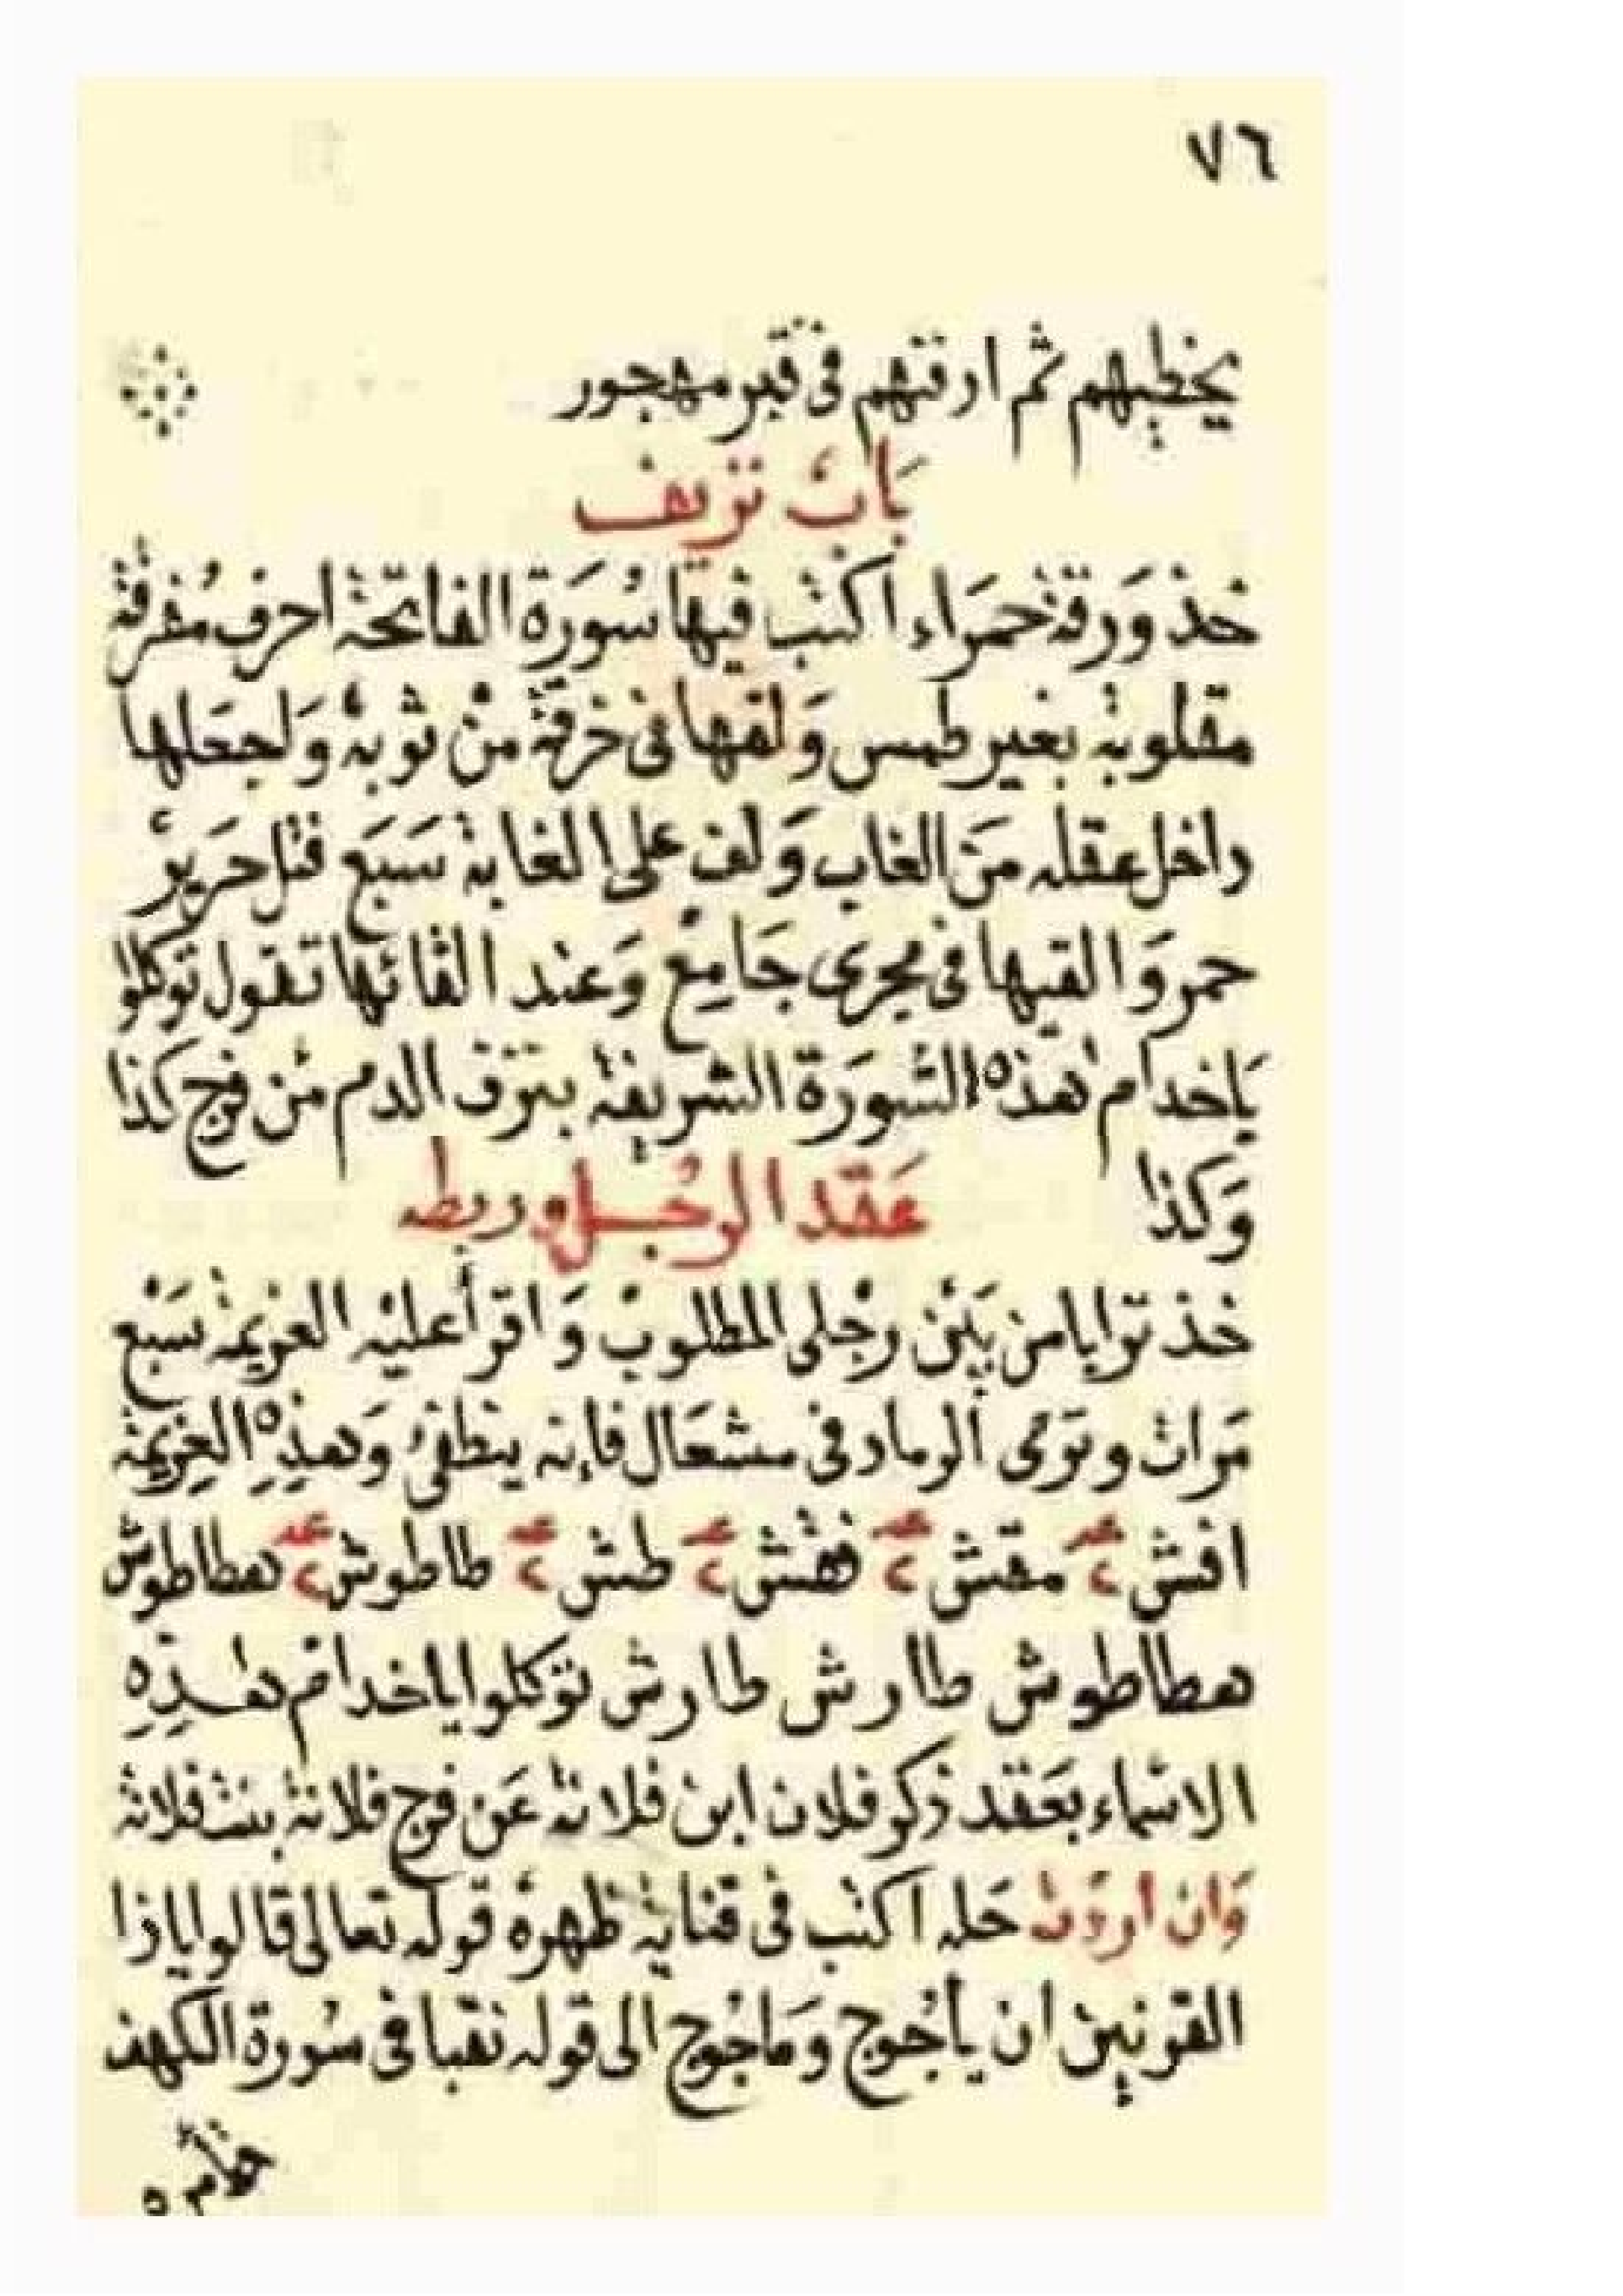 ٧٦
يخطيهم ثم ارقتهم فى قبر مهجور
بَابُ نزيف
خذ وَرقة حمَراء اكتب فيها سُورَة الفاتحة احرف مُفرقة
مقلوبة بغير طمس وَلفها فى خرقة منْ ثوبه وَاجعَلها
داخل عقله منَ الغاب وَلف على الغابة سَبَع فتل حَرير
حمر وَالقيها فى مجرى جَامِع وَعند القائها تقول توكلوا
يَاخدام هذه السُّورَة الشريفة بنزف الدم من فرج كذا
وَكذا
عَقد الرجُل وربطه
خذ ترابا من بَيْن رجْلى المطلوب وَاقرأ عليْه العزيمة سَبْع
مَرات وترمى الرماد فى مشعَال فإنه ينطفئ وَهذِه العزِيمَة
اقش ٢ مقش ٢ فقش ٢ طش ٢ طاطوش ٢ هطاطوش
هطاطوش طارش طارش توكلوا ياخدام هذِهِ
الاسْماء بعَقد ذكر فلان ابن فلانة عَن فرج فلانة بنت فلانة
وَان اردت حَله اكتب فى قناية ظهره قوله تعالى قالوا ياذا
القرنين ان يأجُوج وَمأجُوج الى قوله نقبا فى سُورة الكهف